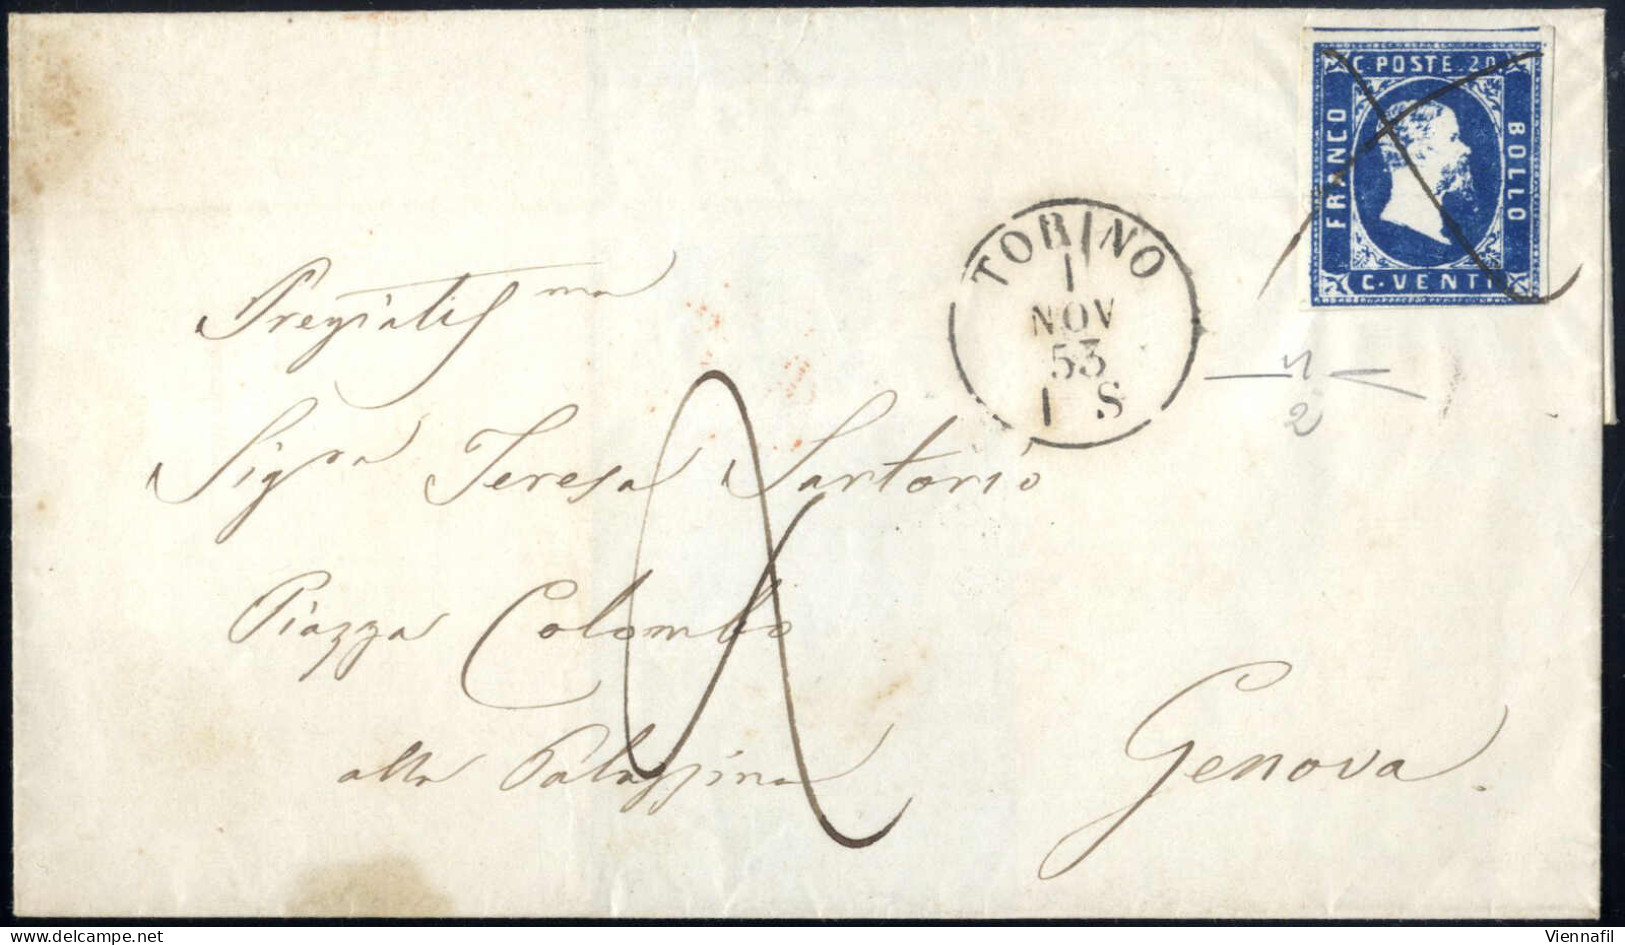 C. POSTE. 20.
FRANCO
BOLLO
C. VENTI
TORINO
1
NOV
53
1 S
Pregiatis ma
Sigra Teresa Sartorio
Piazza Colombo
alla Palazzina
Genova.
2
Viennafil